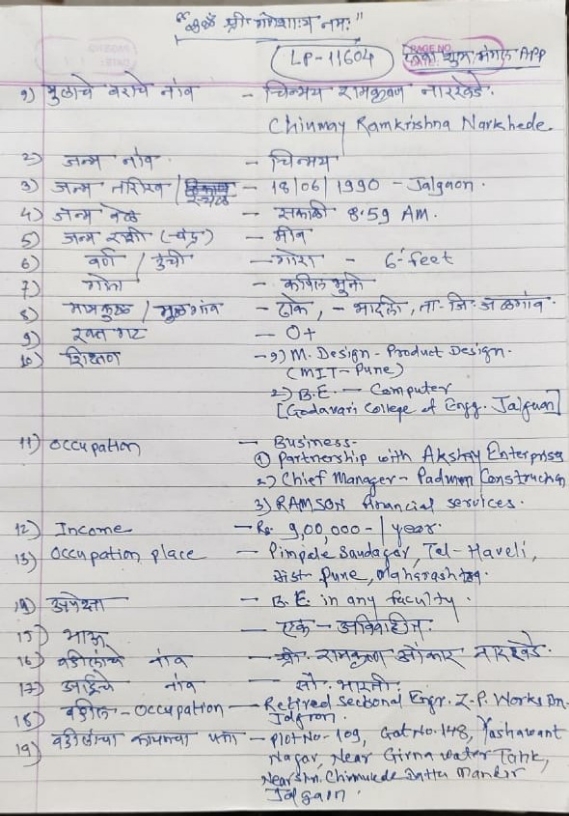 "ॐ श्री गणेशाय नमः"
LP-11604 शुभ मंगल APP
१) मुलाचे वराचे नांव - चिन्मय रामकृष्ण नारखेडे.
Chinmay Ramkrishna Narkhede.
२) जन्म नांव. - चिन्मय
३) जन्म तारीख / स्थळ - 18/06/1990 - Jalgaon.
४) जन्म वेळ - सकाळी 8.59 AM.
५) जन्म रक्षी (चंद्र) - मीन
६) वर्ण / उंची - गोरा - 6-feet
७) गोत्र - कपिल मुनी
८) / मूळगांव - टोके, - भादली, ता-जि-जळगांव.
९) रक्त गट - O+
१०) शिक्षण - १) M. Design - Product Design.
(MIT-Pune)
२) B.E. - Computer
[Godavari College of Engg. Jalgaon]
11) Occupation - Business-
① Partnership with Akshay Enterprises
२) Chief Manager - Construction
3) RAMSON Financial services.
12) Income - Rs. 9,00,000-/year.
13) Occupation place - Pimpale Saudagar, Tel-Haveli,
Dist Pune, Maharashtra.
14) अपेक्षा - B.E in any faculty.
15) भाऊ - एक - अविवाहीत
16) वडीलांचे नांव - श्री. रामकृष्ण ओंकार नारखेडे.
17) आईचे नांव - सौ. भारती.
18) वडील - Occupation - Retired Sectional Engr. Z.P. Works Dn.
Jalgaon.
19) वडीलांचा कायमचा पत्ता - Plot No-109, Gat No. 148, Yashawant
Nagar, Near Girna water Tank,
Near Chimukle Datta Mandir
Jalgaon.